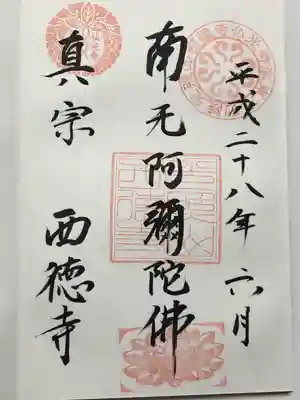 平成二十八年 六月
南无阿彌陀佛
真宗 西徳寺